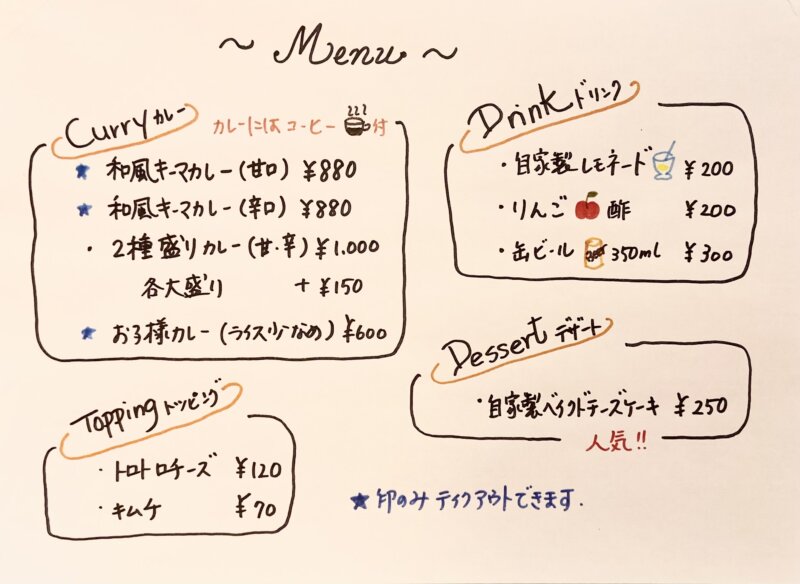 ~ Menu ~
Curry カレー
カレーにはコーヒー付
★ 和風キーマカレー(甘口) ¥880
★ 和風キーマカレー(辛口) ¥880
・2種盛りカレー(甘・辛) ¥1.000
各大盛り + ¥150
★ お子様カレー(ライス少なめ) ¥600
Topping トッピング
・トロトロチーズ ¥120
・キムチ ¥70
Drink ドリンク
・自家製レモネード ¥200
・りんご酢 ¥200
・缶ビール 350ml ¥300
Dessert デザート
・自家製ベイクドチーズケーキ ¥250
人気!!
★印のみ テイクアウトできます.